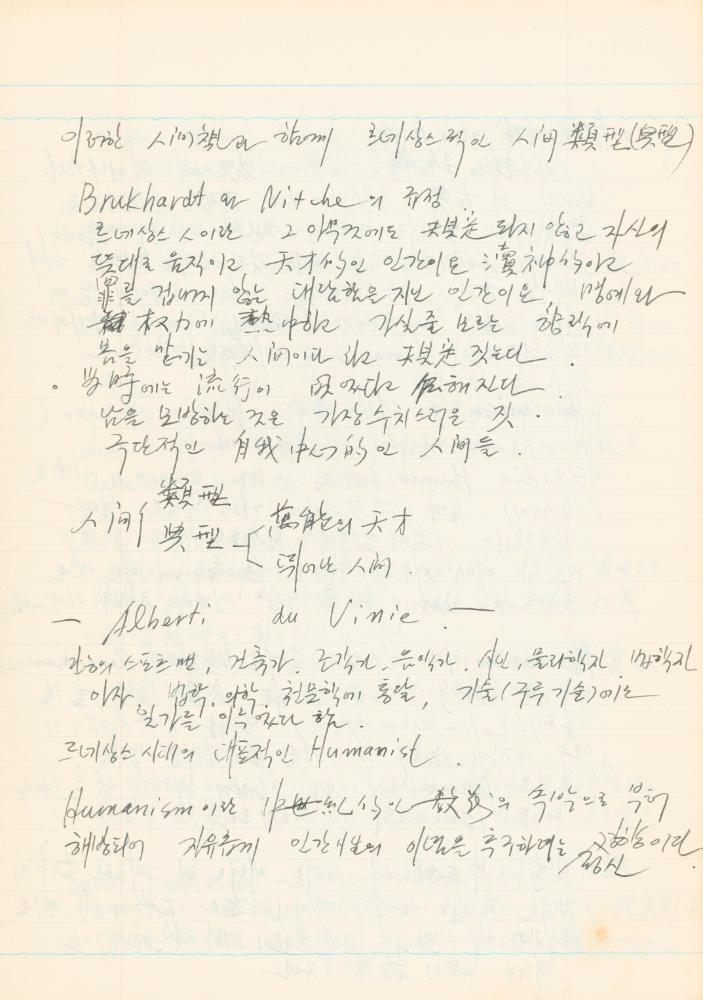 이러한 人间책과 함께 르네상스적인 人间類型(典型)
Brukhardt 와 Nitche의 규정
르네상스人이란 그 아무것에도 規定되지 않고 자신의
뜻대로 움직이고 天才的인 인간이요 瀆神的이고
罪를 겁내지 않는 대담함을 지닌 인간이요, 명예와
权力에 熱中하고 가실줄 모르는 향락에
몸을 맡기는 人间이다 라고 規定짓는다.
。当時에는 流行이 없었다고 伝해진다.
남을 모방하는 것은 가장 수치스러운 것.
극단적인 自我中心的인 人间들.
人间 類型
典型 萬能의 天才
뛰어난 人间.
— Alberti du Vinie. —
만능의 스포츠맨, 건축가, 조각가, 음악가, 시인, 물리학자, 법학자
이자 법학, 의학, 천문학에 통달, 기술(구두기술)에도
일가를 이루었다 함.
르네상스시대의 대표적인 Humanist.
Humanism이란 中世紀的인 敎義의 속악으로부터
해방되어 자유롭게 인간개성의 이념을 추구하려는 정신이다.